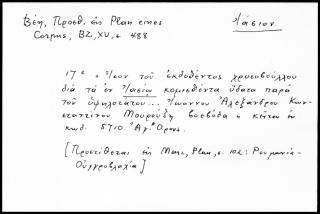 Βέη, Προσθ. εἰς Plan eines
Corpus, BZ, XV, σ 488
Ἰάσιον
17 ον τοῦ ἐκδοθέντος χρυσοβούλλου
διὰ τὰ ἐν Ἰασίῳ κομισθέντα ὕδατα παρὰ
τοῦ ὑψηλοτάτου... Ἰωάννου Ἀλεξάνδρου Κων-
σταντίνου Μουρούζη βοεβόδα κεῖται ἐν
κωδ. 5710 Ἁγ. Ὄρους.
[Προστίθεται εἰς Marc, Plan, σ. 102: Ρουμανία-
Οὐγγροβλαχία]